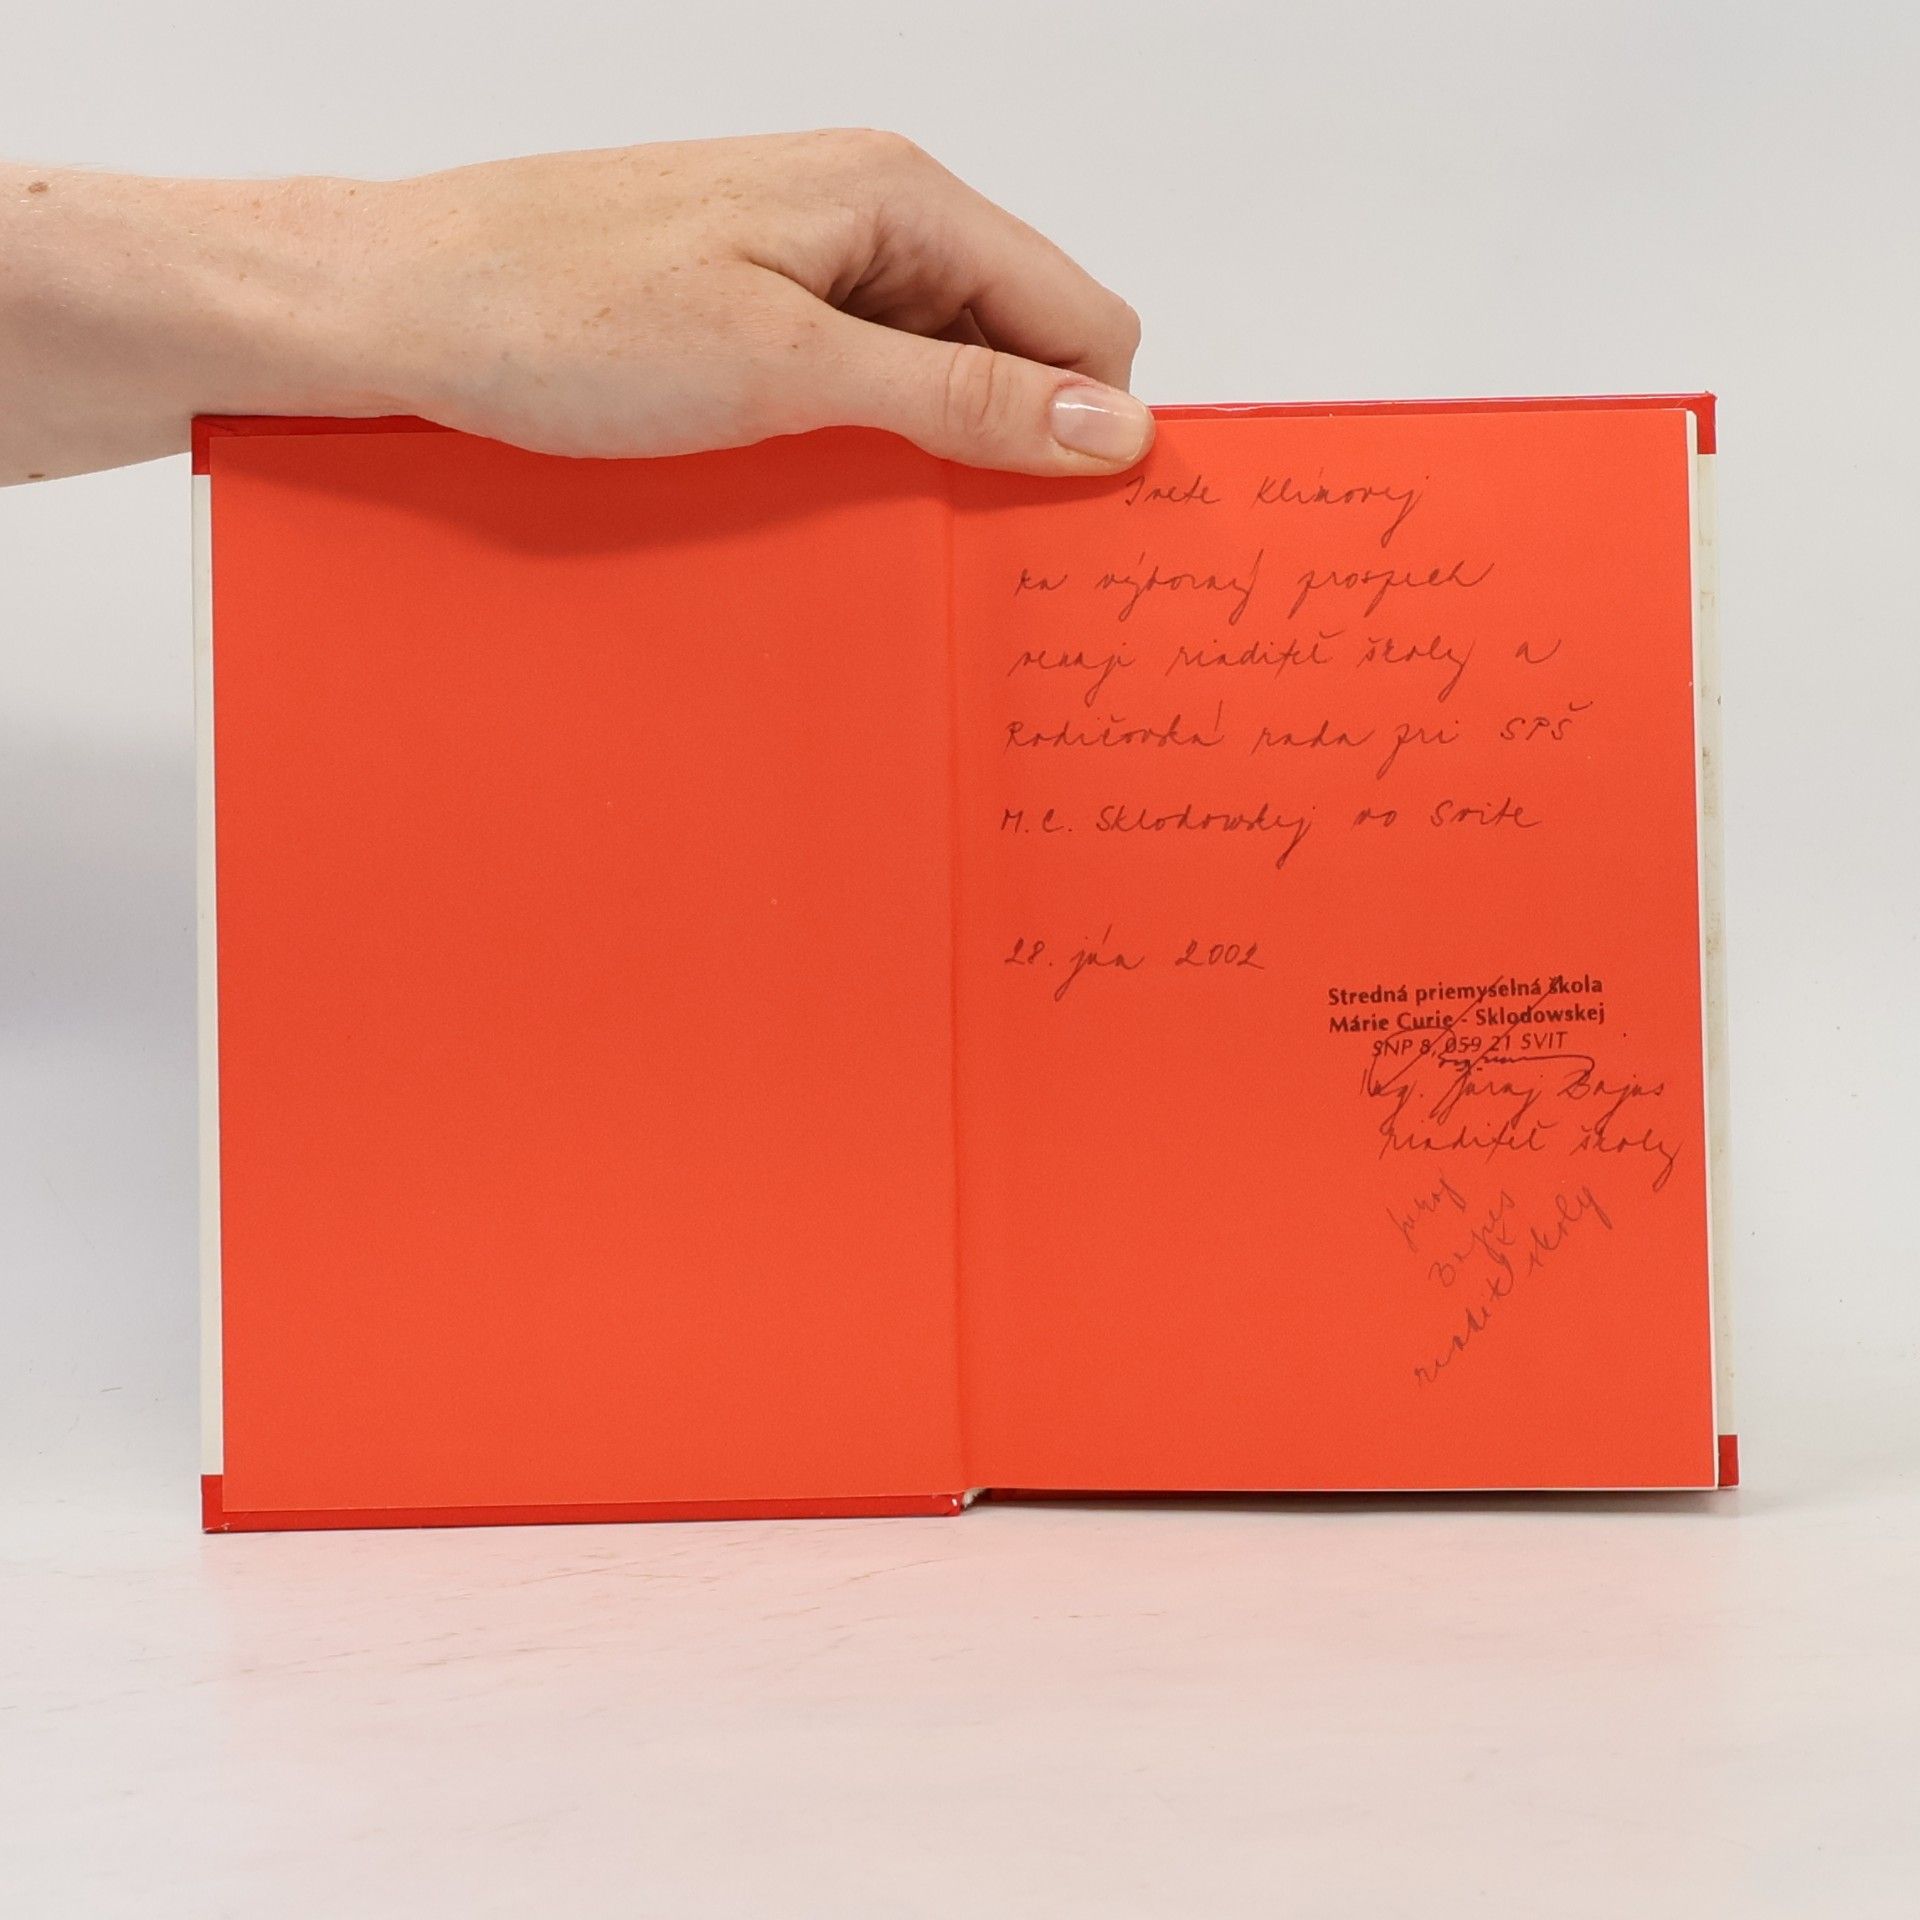 Ivete Klimovej
za výborný prospech
venuje riaditeľ školy a
Rodičovská rada pri SPŠ
M. C. Sklodowskej vo Svite
28. jún 2002
Stredná priemyselná škola
Márie Curie - Sklodowskej
SNP 8, 059 21 SVIT
Ing. Juraj Bajus
riaditeľ školy
Juraj
Bajus
riaditeľ školy